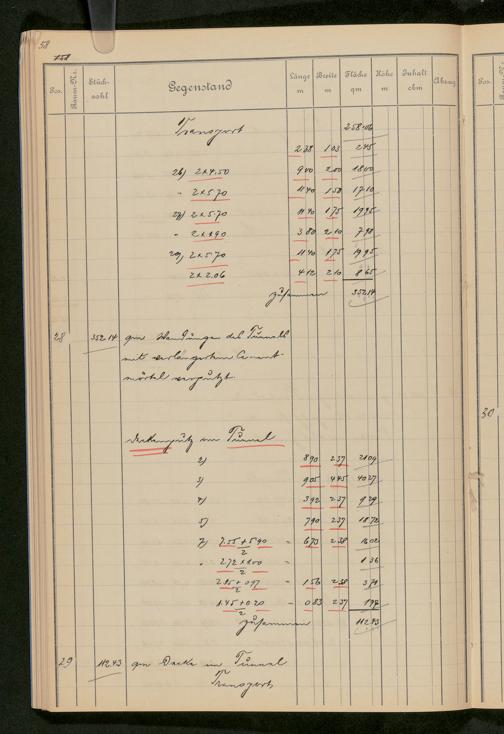 58
151
Pos. Raum-Nr. Stückzahl Gegenstand Länge m Breite m Fläche qm Höhe m Inhalt cbm Abzug Pos.
Transport 258.06
2 38 1 03 2 45
26) 2×4.50 9 00 2 00 18 00
" 2×5.70 11 40 1 50 17 10
2×5.70 11 40 1 75 19 95
" 2×1.90 3 80 2 10 7 98
2×5.70 11 40 1 75 19 95
2×2.06 4 12 2 10 8 65
zusammen 352 14
28 352.14 qm Wandungen des Tunnels
mit verlängertem Cement-
mörtel verputzt
30
Deckenputz im Tunnel
2) 8 90 2 37 21 09
3) 9 05 4 45 40 27
4) 3 92 2 37 9 29
5) 7 90 2 37 18 72
7) 7.55+5.90 / 2 = 6 73 2 38 16 02
" 2.72×1.00 / 2 = 1 36
/ 2 = 1 56 2 38 3 71
1.45+0.20 / 2 = 0 83 2 37
zusammen 112 43
29 112.43 qm Decke im Tunnel
Transport